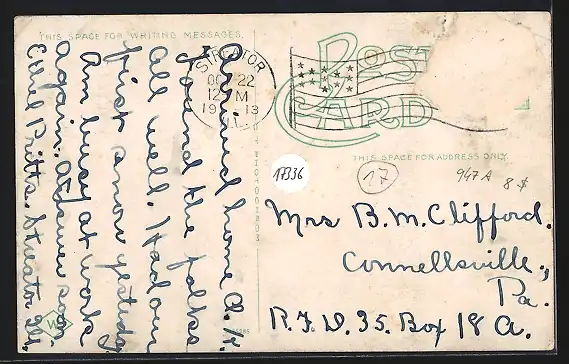 THIS SPACE FOR WRITING MESSAGES.
Arrived home O.K.
found the folks
all well. Had our
first snow yesterday
Am busy at work
again. Answer soon
Ethel Pritts. Streator Ill.
STREATOR
OC 22
12 M
19 13
ILL.
POST
CARD
THIS SPACE FOR ADDRESS ONLY.
17336
17
947A 8$
Mrs B. M. Clifford.
Connellsville,
Pa.
R.F.D. 35. Box 18 A.